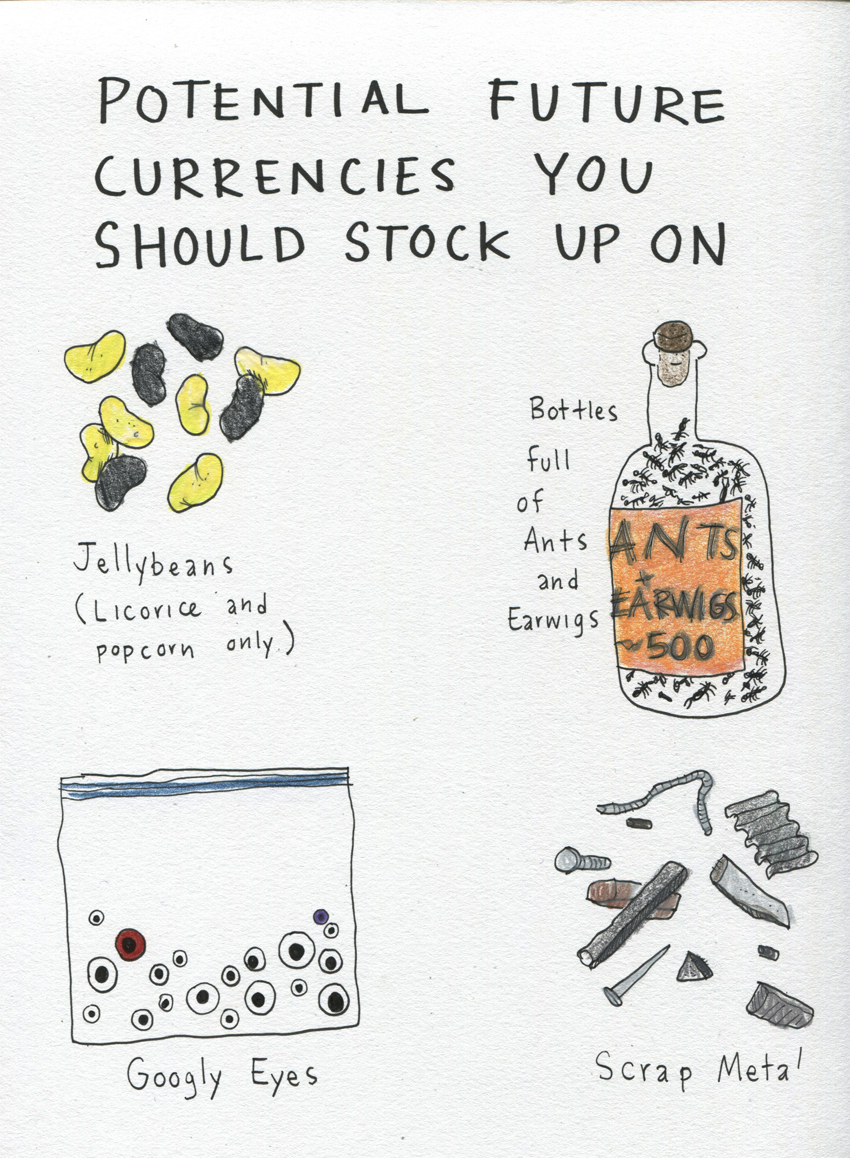 POTENTIAL FUTURE
CURRENCIES YOU
SHOULD STOCK UP ON
Jellybeans
(Licorice and
popcorn only.)
Bottles
full
of
Ants
and
Earwigs
ANTS
+
EARWIGS
~500
Googly Eyes
Scrap Metal